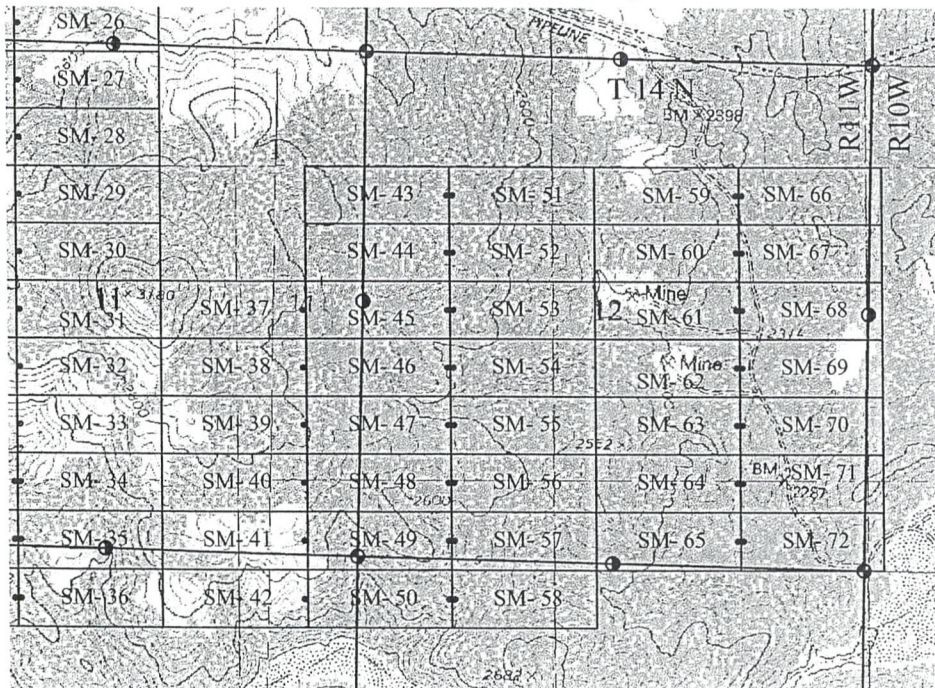 SM- 26
PIPELINE
SM- 27
T 14 N
BM × 2398
R11W
R10W
SM- 28
SM- 29 SM- 43 SM- 51 SM- 59 SM- 66
SM- 30 SM- 44 SM- 52 SM- 60 SM- 67
11 × 3180 Mine
SM- 31 SM- 37 SM- 45 SM- 53 12 SM- 61 SM- 68
2314
SM- 32 SM- 38 SM- 46 SM- 54 Mine SM- 69
SM- 62
SM- 33 SM- 39 SM- 47 SM- 55 SM- 63 SM- 70
2552 ×
SM- 34 SM- 40 SM- 48 SM- 56 SM- 64 BM SM- 71
2600 × 2287
SM- 35 SM- 41 SM- 49 SM- 57 SM- 65 SM- 72
SM- 36 SM- 42 SM- 50 SM- 58
2682 ×